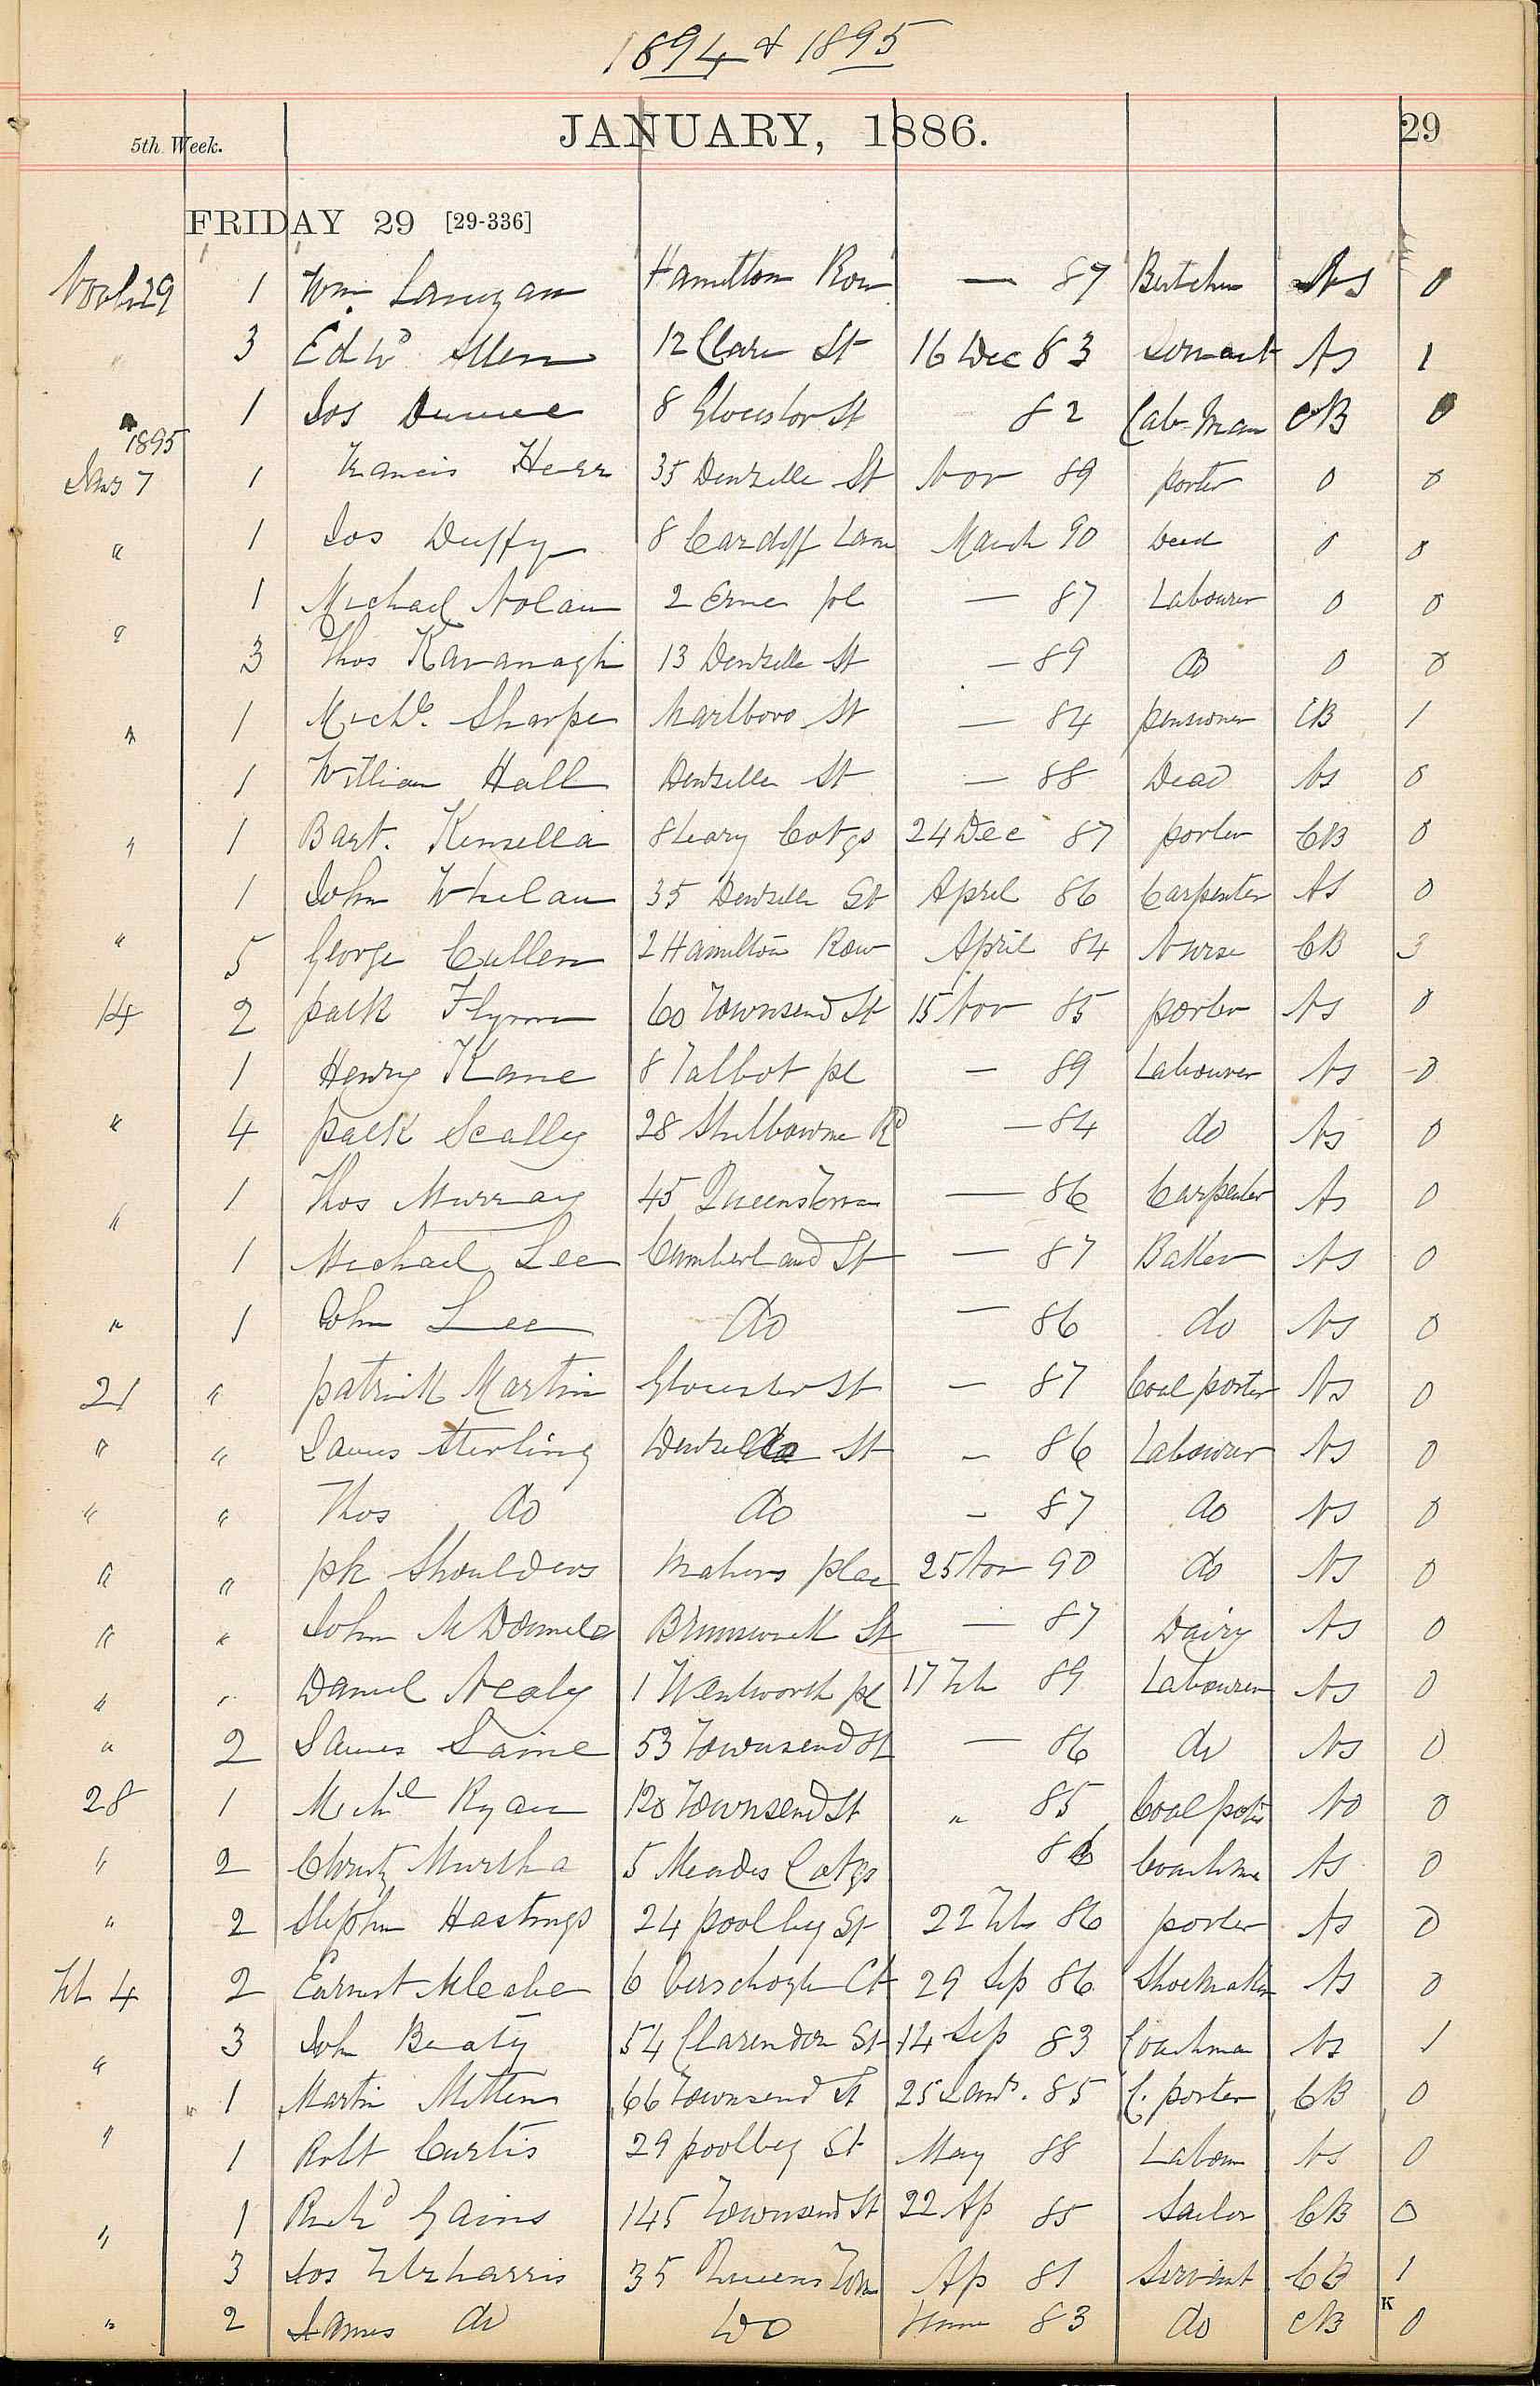 1894 & 1895
5th Week. JANUARY, 1886. 29
FRIDAY 29 [29-336]
Novbr 29 1 Wm Lanigan Hamilton Row — 87 Butcher NS 0
" 3 Edwd Allen 12 Clare St 16 Dec 83 Servant NS 1
" 1 Jos Dunne 8 Gloucester St 82 Cab-Man CB 0
1895
Jany 7 1 Francis Herr 35 Denzelle St Nov 89 porter 0 0
" 1 Jos Duffy 8 Cardiff Lane March 90 Dead 0 0
1 Michael Nolan 2 Erne pl — 87 Labourer 0 0
" 3 Thos Kavanagh 13 Denzelle St — 89 do 0 0
" 1 Michl. Sharpe Marlboro St — 84 pensioner CB 1
1 William Hall Denzelle St — 88 Dead NS 0
" 1 Bart. Kinsella 8 Leary Cotgs 24 Dec 87 porter CB 0
1 John Whelan 35 Denzelle St April 86 Carpenter NS 0
" 5 George Cullen 2 Hamilton Row April 84 Nurse CB 3
14 2 patk Flynn 60 Townsend St 15 Nov 85 porter NS 0
1 Henry Kane 8 Talbot pl — 89 Labourer NS 0
" 4 patk Scally 28 Shelbourne Rd — 84 do NS 0
1 Thos Murray 45 Queens Terrace — 86 Carpenter NS 0
" 1 Michael Lee Cumberland St — 87 Baker NS 0
" 1 John Lee do — 86 do NS 0
21 " patrick Martin Gloucester St — 87 Coal porter NS 0
" " James Sterling Denzelle St — 86 Labourer NS 0
" " Thos do do — 87 do NS 0
" " pk Shoulders Mahers place 25 Nov 90 do NS 0
" " John McDonnell Brunswick St — 87 Dairy NS 0
" " Daniel Nealy 1 Wentworth pl 17 Feb 89 Labourer NS 0
" 2 James 53 Townsend St — 86 do NS 0
28 1 Michl Ryan 120 Townsend St " 85 Coal porter NS 0
" 2 Christy Murtha 5 Meades Cotgs 86 Coachman NS 0
" 2 Stephen Hastings 24 poolbeg St 22 Feb 86 porter NS 0
Feb 4 2 Earnest McCabe 6 Verschoyle Ct 29 Sep 86 Shoemaker NS 0
" 3 John Beaty 54 Clarendon St 14 Sep 83 Coachman NS 1
" 1 Martin Mitten 66 Townsend St 25 Jany. 85 C. porter CB 0
" 1 Robt Curtis 29 poolbeg St May 88 Labour NS 0
" 1 Richd Gains 145 Townsend St 22 Ap 85 Sailor CB 0
3 Jos Fitzharris 35 Queens Terr Ap 81 Servant CB 1
" 2 James do Do 83 do CB 0
K